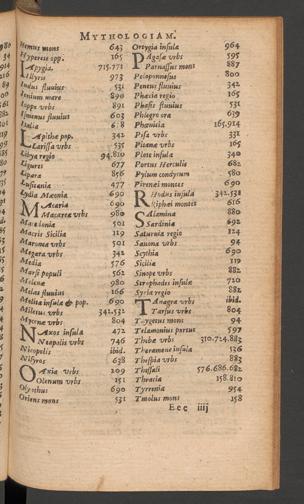 MYTHOLOGIAM.
Hemus mons 643
Hyperesis opp. 165
Iapygia. 715.771
Illyris 973
Indus fluuius 531
Ionium mare 890
Ioppe vrbs 891
Ismenus fluuius 603
Italia 618
Lapithæ pop. 342
Larissa vrbs 535
Libya regio 94.819
Ligures 677
Lipara 856
Lusitania 477
Lydia Mæonia 690
Macaria 690
Macareæ vrbs 980
Macris Sicilia 119
Maronea vrbs 501
Megara vrbs 342
Media 576
Marsi populi 562
Medonæ 980
Melas fluuius 166
Melita insula & pop. 690
Miletus vrbs 342.532
Mycenæ vrbs 804
Naxos insula 472
Neapolis vrbs 746
Nicopolis ibid.
Nisyros 638
Oaxia vrbs 209
Olenum vrbs 151
Olynthus 690
Oriens mons 531
Ortygia insula 964
Pagasæ vrbs 595
Parnassus mons 887
Peloponnesus 800
Peneus fluuius 342
Phæacia regio 165
Phasis fluuius 531
Phlegra ora 639
Phœnicia 165.914
Pisa vrbs 331
Pitane vrbs 165
Plote insula 340
Portus Herculis 682
Pylum condyrum 580
Pirenæi montes 690
Rhodus insula 342.532
Riphei montes 616
Salamina 880
Sardinia 692
Saturnia regio 124
Sauona vrbs 94
Scythia 690
Sicilia 119
Sinope vrbs 882
Strophades insulæ 720
Syria regio 882
Tanagra vrbs ibid.
Tarsus vrbs 804
Taygetus mons 94
Telamonius portus 597
Thebæ vrbs 310.724.883
Theramenæ insula 126
Thespia vrbs 883
Thessali 576.686.682
Thracia 158.810
Tyrrenia 954
Tmolus mons 158
Ecc iiij